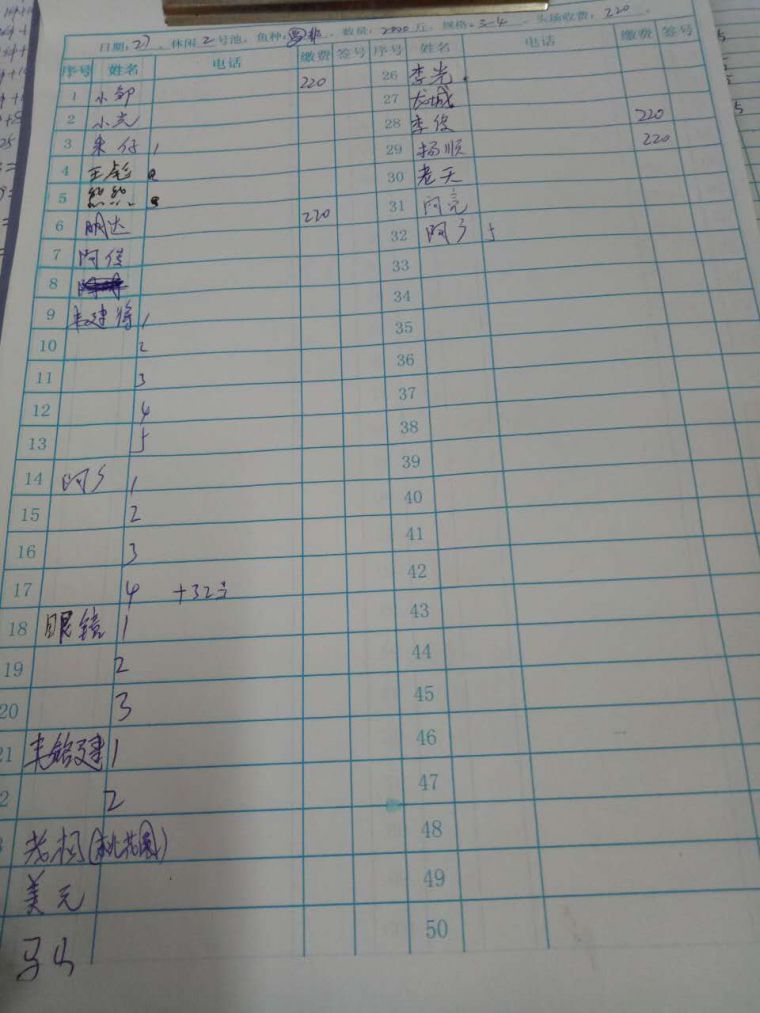 日期: 27 . 休闲 2 号池. 鱼种: 数量: 2800 斤. 规格: 3-4 . 头场收费: 220 .
序号 姓名 电话 缴费 签号 序号 姓名 电话 缴费 签号
1 小邹 220 26 李光 .
2 小光 27 龙城
3 朱仔 1 28 李俊 220
4 王彪 29 杨顺 220
5 熊熊 30 老天
6 明达 220 31 阿亮
7 阿佳 32 阿乡 5
8 33
9 朱建将 1 34
10 2 35
11 3 36
12 4 37
13 5 38
14 阿乡 1 39
15 2 40
16 3 41
17 4 +32号 42
18 眼镜 1 43
19 2 44
20 3 45
21 1 46
2 2 47
老杨(桃花园) 48
美元 49
马山 50